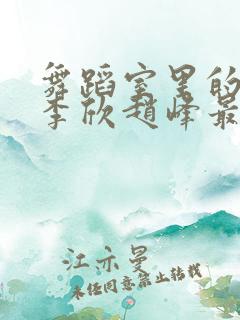 舞蹈室里的
李欣赵峰最
江亦曼
未经同意禁止转载